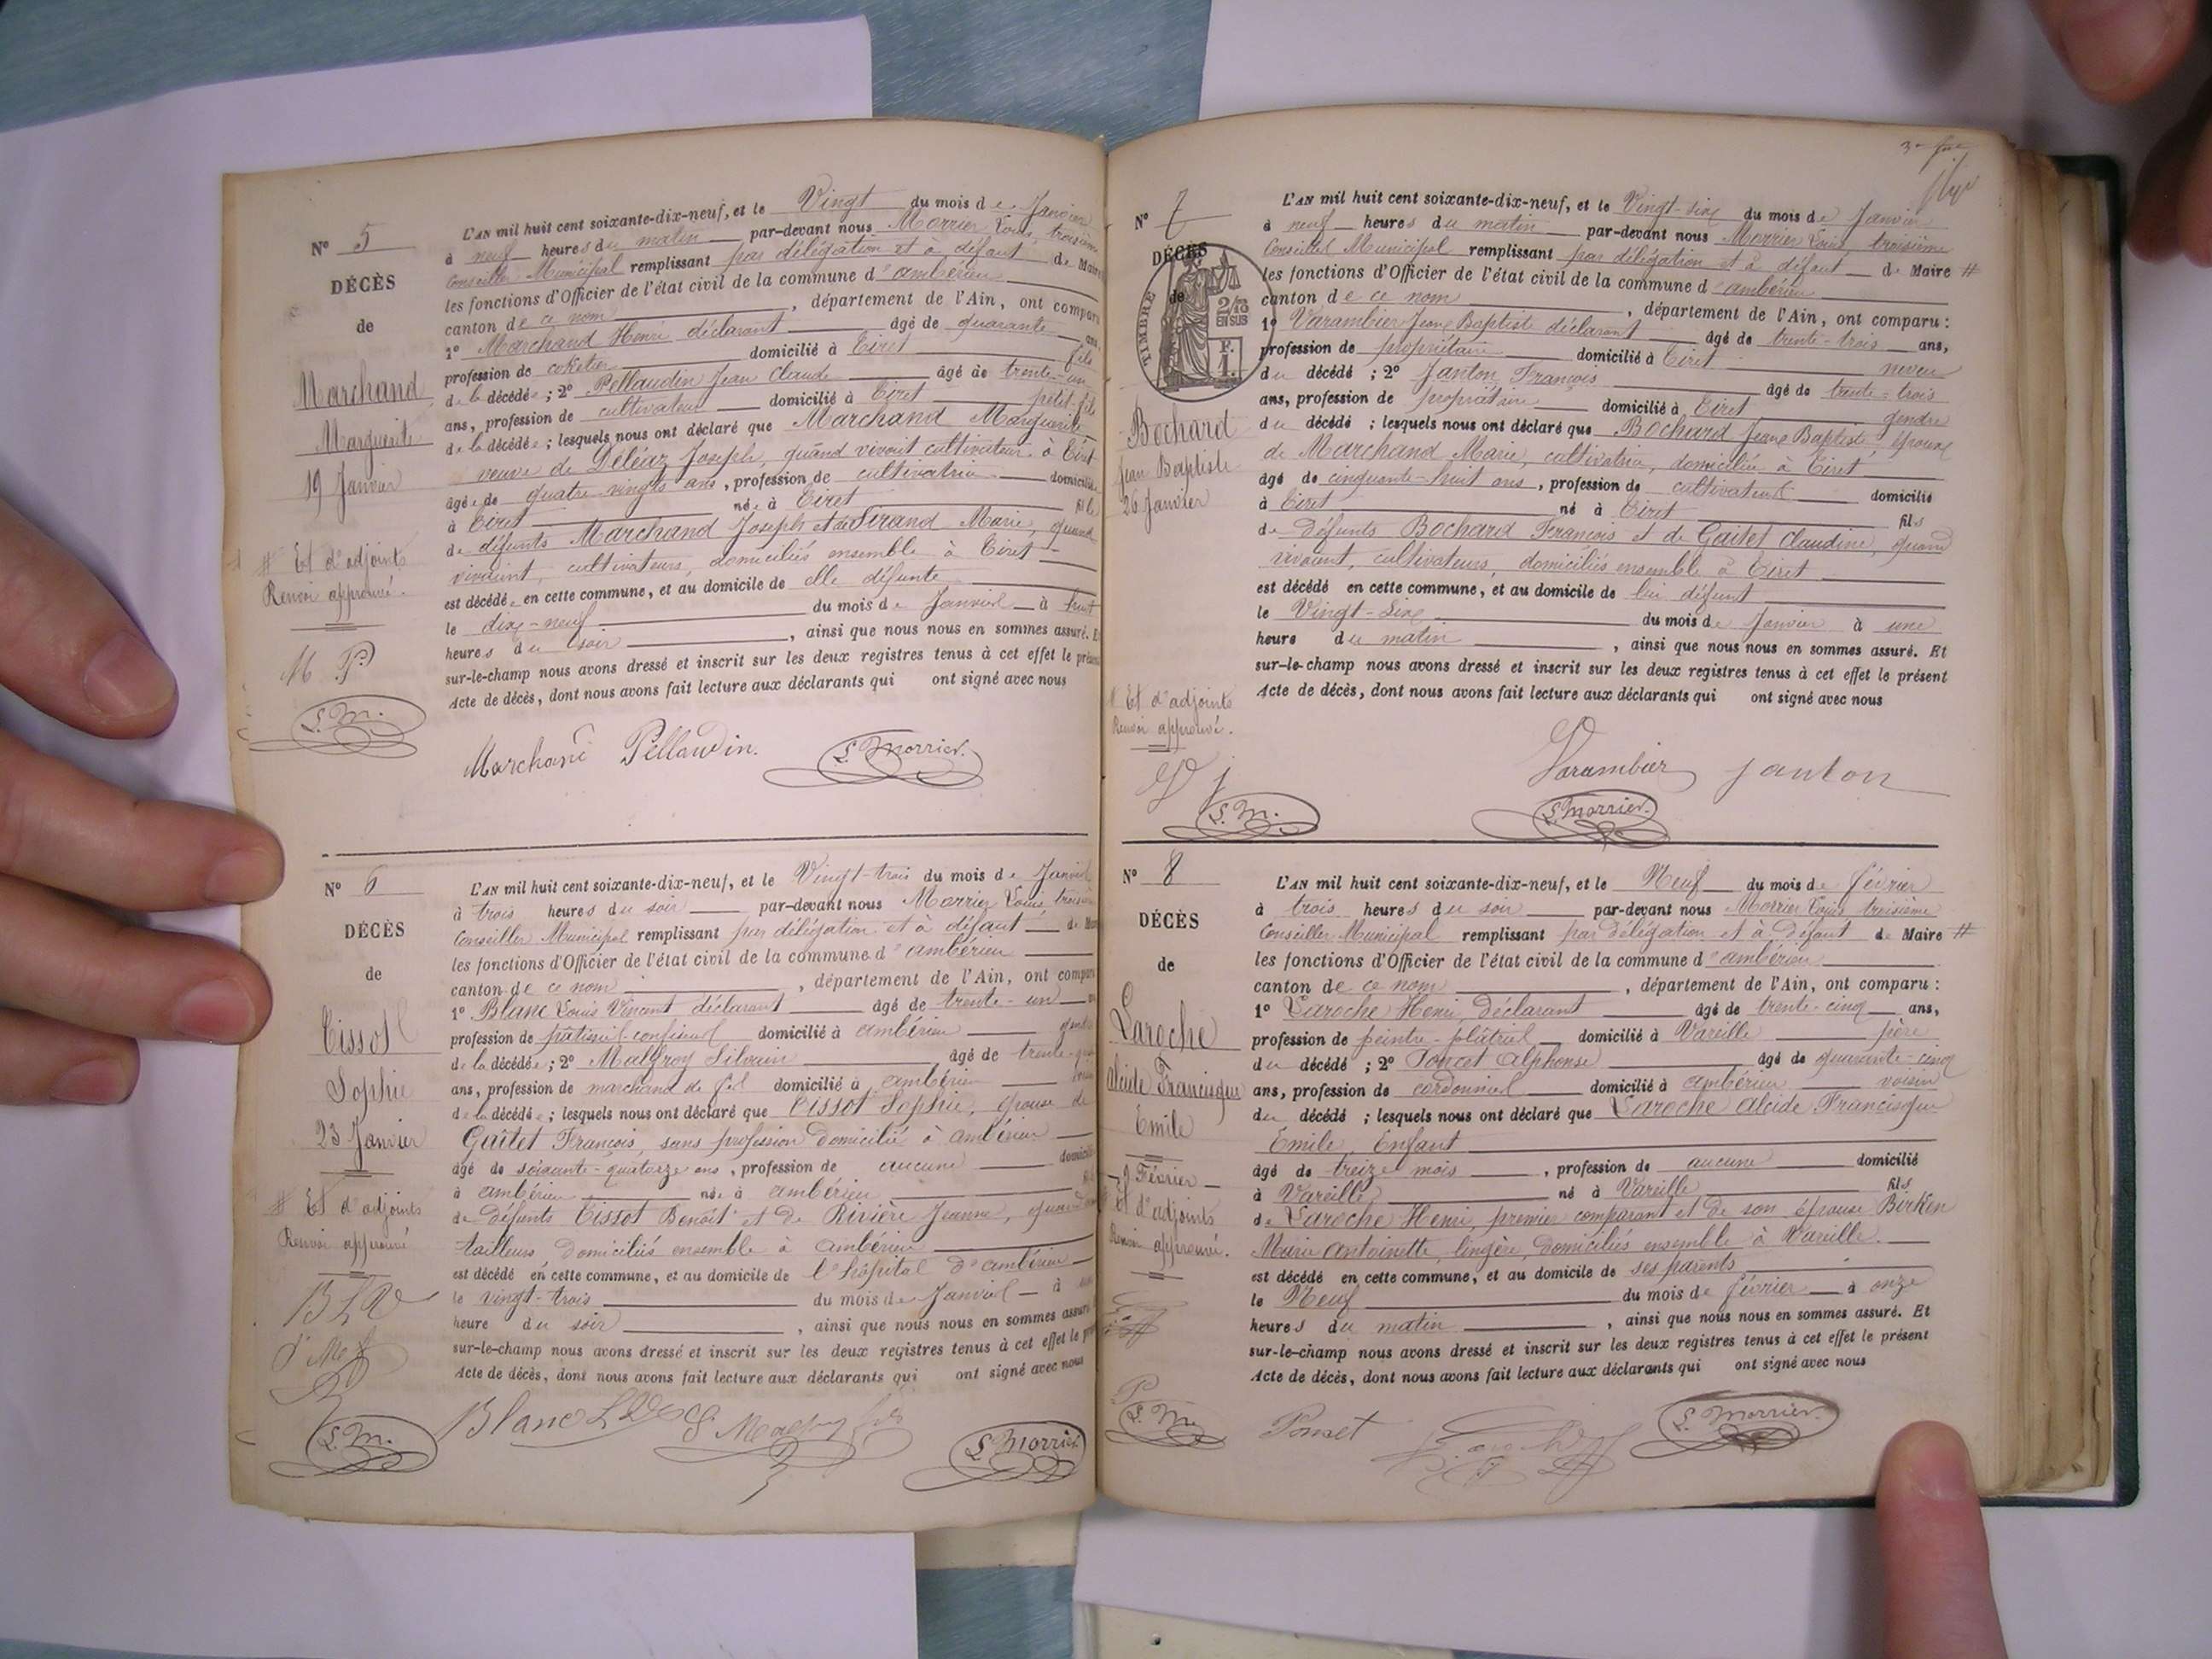 N° 5
DÉCÈS
de
Marchand
Marguerite
19 Janvier
# Et d'adjoints
Renvoi approuvé.
M P
L. M.
L'AN mil huit cent soixante-dix-neuf, et le Vingt du mois de Janvier
à neuf heures du matin par-devant nous Morrier Louis, troisième
Conseiller Municipal remplissant par délégation et à défaut de Maire
les fonctions d'Officier de l'état civil de la commune d'ambérieu
canton de ce nom, département de l'Ain, ont comparu
1° Marchand Henri déclarant âgé de quarante ans,
profession de domicilié à Tiret fils
de la décédée ; 2° Pellaudin Jean Claude âgé de trente-un
ans, profession de cultivateur domicilié à Tiret petit-fils
de la décédée ; lesquels nous ont déclaré que Marchand Marguerite
veuve de Déléaz Joseph, quand vivait cultivateur à Tiret
âgée de quatre-vingts ans, profession de cultivatrice domiciliée
à Tiret née à Tiret fille
de défunts Marchand Joseph et de Sirand Marie, quand
vivaient, cultivateurs, domiciliés ensemble à Tiret
est décédée en cette commune, et au domicile de elle défunte
le dix-neuf du mois de Janvier à huit
heures du soir, ainsi que nous nous en sommes assuré. Et
sur-le-champ nous avons dressé et inscrit sur les deux registres tenus à cet effet le présent
Acte de décès, dont nous avons fait lecture aux déclarants qui ont signé avec nous
Marchand Pellaudin. L. Morrier.
N° 6
DÉCÈS
de
Tissot
Sophie
23 Janvier
# Et d'adjoints
Renvoi approuvé
L. M.
L'AN mil huit cent soixante-dix-neuf, et le Vingt-trois du mois de Janvier
à trois heures du soir par-devant nous Morrier Louis, troisième
Conseiller Municipal remplissant par délégation et à défaut de Maire
les fonctions d'Officier de l'état civil de la commune d'ambérieu
canton de ce nom, département de l'Ain, ont comparu
1° Blanc Louis Vincent déclarant âgé de trente-un
profession de pâtissier-confiseur domicilié à ambérieu gendre
de la décédée ; 2° Malfroy Silvain âgé de trente
ans, profession de marchand de fer domicilié à ambérieu
de la décédée ; lesquels nous ont déclaré que Tissot Sophie, épouse de
Gaîtet François, sans profession domicilié à ambérieu
âgé de soixante-quatorze ans, profession de aucune domicilié
à ambérieu née à ambérieu
de défunts Tissot Benoît et de Rivière Jeanne, quand
tailleurs domiciliés ensemble à ambérieu
est décédé en cette commune, et au domicile de l'hôpital d'ambérieu
le vingt-trois du mois de Janvier à une
heure du soir, ainsi que nous nous en sommes assuré
sur-le-champ nous avons dressé et inscrit sur les deux registres tenus à cet effet le
Acte de décès, dont nous avons fait lecture aux déclarants qui ont signé avec nous
Blanc L. Morrier
N° 7
DÉCÈS
de
TIMBRE
2/10 EN SUS
F. 1.
Bochard
Jean Baptiste
26 Janvier
# Et d'adjoints
Renvoi approuvé.
V j
L. M.
L'AN mil huit cent soixante-dix-neuf, et le Vingt-six du mois de Janvier
à neuf heures du matin par-devant nous Morrier Louis, troisième
Conseiller Municipal remplissant par délégation et à défaut de Maire #
les fonctions d'Officier de l'état civil de la commune d'ambérieu
canton de ce nom, département de l'Ain, ont comparu :
1° Varambier Jean Baptist déclarant âgé de trente-trois ans,
profession de propriétaire domicilié à Tiret neveu
du décédé ; 2° Janton François âgé de trente-trois
ans, profession de propriétaire domicilié à Tiret gendre
du décédé ; lesquels nous ont déclaré que Bochard Jean Baptiste époux
de Marchand Marie, cultivatrice, domiciliée à Tiret
âgé de cinquante-huit ans, profession de cultivateur domicilié
à Tiret né à Tiret fils
de défunts Bochard François et de Gaitet Claudine, quand
vivaient, cultivateurs, domiciliés ensemble à Tiret
est décédé en cette commune, et au domicile de lui défunt
le Vingt-Six du mois de Janvier à une
heure du matin, ainsi que nous nous en sommes assuré. Et
sur-le-champ nous avons dressé et inscrit sur les deux registres tenus à cet effet le présent
Acte de décès, dont nous avons fait lecture aux déclarants qui ont signé avec nous
Varambier Janton
L. Morrier.
N° 8
DÉCÈS
de
Laroche
alcide Francisque
Emile
9 Février
# Et d'adjoints
Renvoi approuvé.
P
L. M.
L'AN mil huit cent soixante-dix-neuf, et le Neuf du mois de février
à trois heures du soir par-devant nous Morrier Louis troisième
Conseiller Municipal remplissant par délégation et à défaut de Maire #
les fonctions d'Officier de l'état civil de la commune d'ambérieu
canton de ce nom, département de l'Ain, ont comparu :
1° Laroche Henri, déclarant âgé de trente-cinq ans,
profession de peintre-plâtrier domicilié à Vareille père
du décédé ; 2° Poncet Alphonse âgé de quarante-cinq
ans, profession de cordonnier domicilié à ambérieu voisin
du décédé ; lesquels nous ont déclaré que Laroche alcide Francisque
Emile, Enfant
âgé de treize mois, profession de aucune domicilié
à Vareille né à Vareille fils
de Laroche Henri, premier comparant et de son épouse Birken
Marie antoinette, lingère, domiciliés ensemble à Vareille.
est décédé en cette commune, et au domicile de ses parents
le Neuf du mois de février à onze
heures du matin, ainsi que nous nous en sommes assuré. Et
sur-le-champ nous avons dressé et inscrit sur les deux registres tenus à cet effet le présent
Acte de décès, dont nous avons fait lecture aux déclarants qui ont signé avec nous
Poncet L. Morrier.